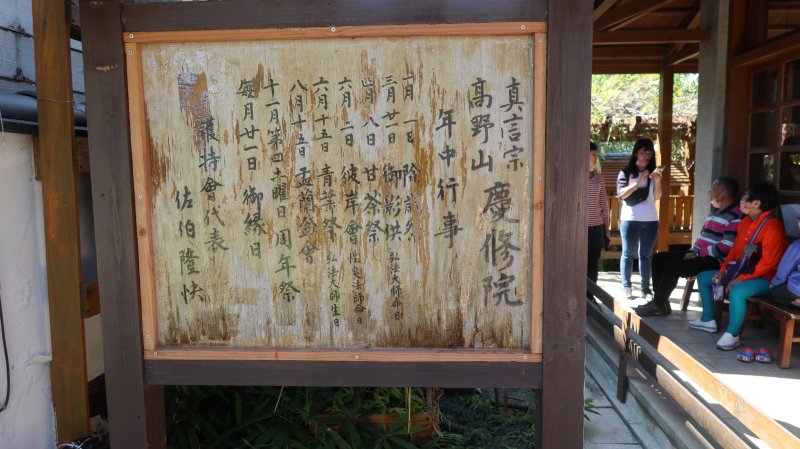 真言宗
高野山 慶修院
年中行事
一月一日
三月廿一日 御影供 弘法大師命日
四月八日 甘茶祭
六月二日 彼岸會
六月十五日 青葉祭 弘法大師生日
八月十五日 盂蘭盆會
十一月第四土曜日 周年祭
每月廿一日 御緣日
護持會代表
佐伯隆快